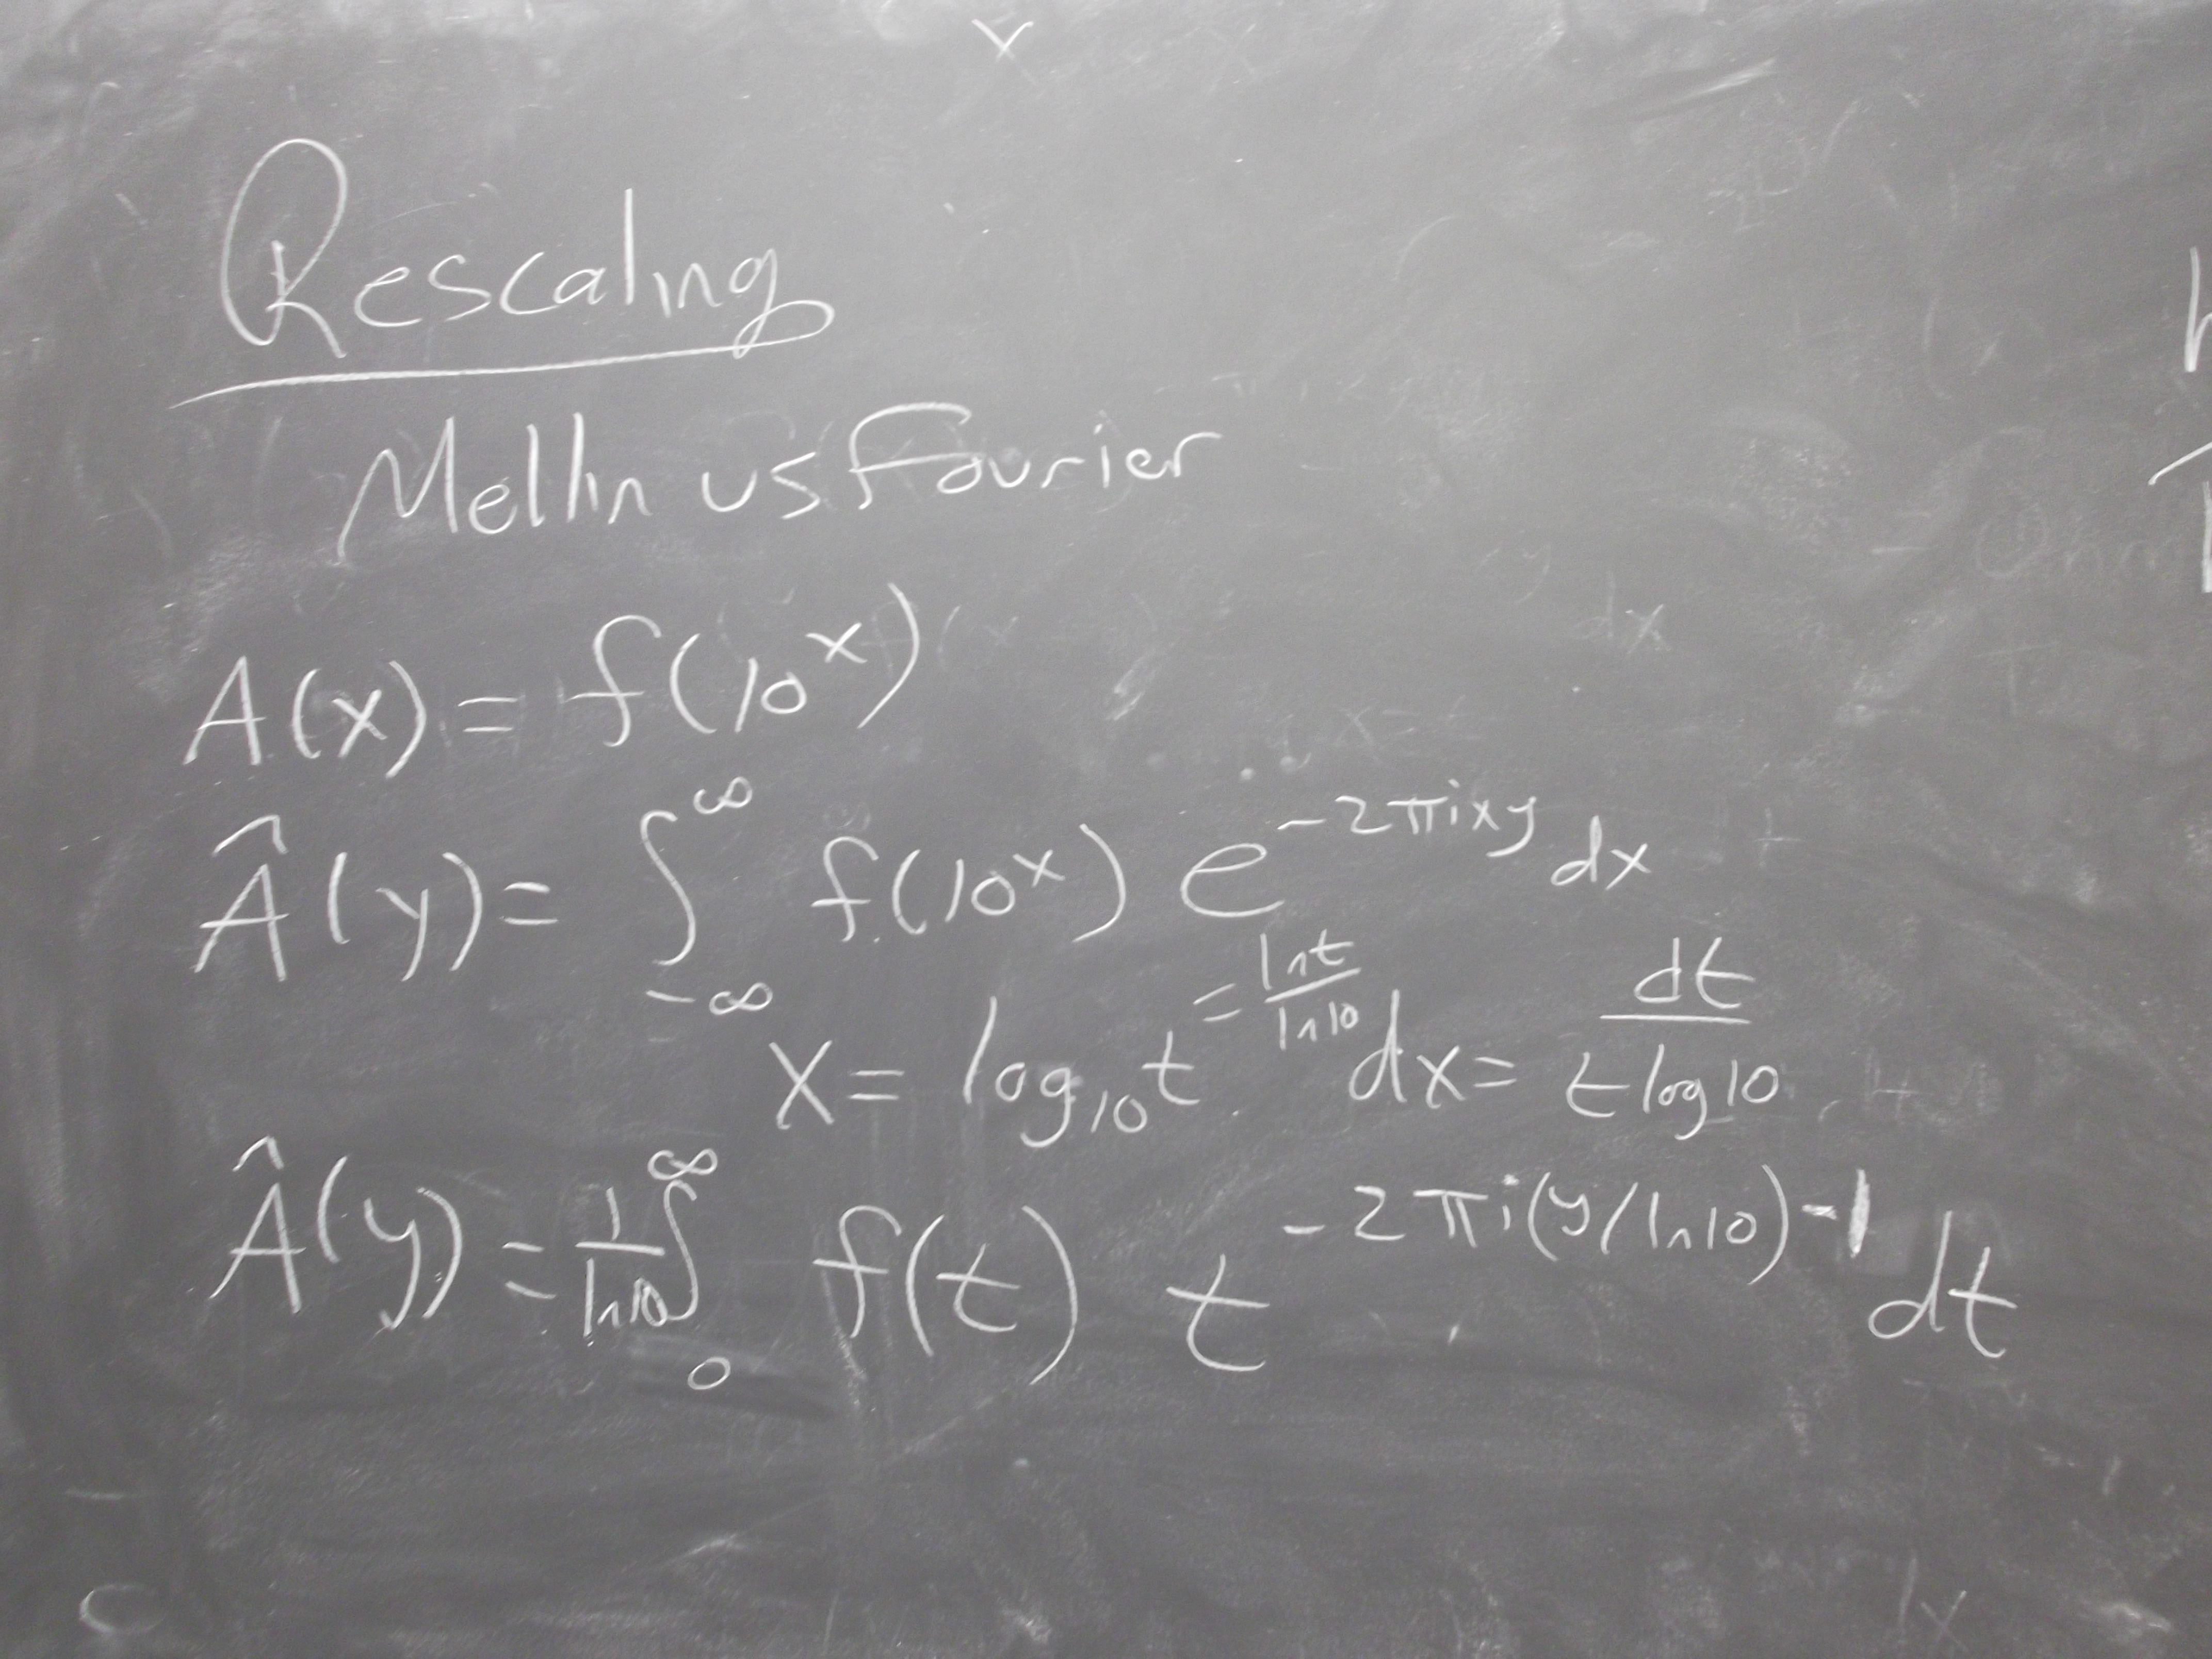 Rescaling
Mellin vs Fourier
A(x) = f(10^x)
Â(y) = ∫_{-∞}^{∞} f(10^x) e^{-2πixy} dx
x = log₁₀t = ln t / ln 10 dx = dt / t log 10
Â(y) = 1/ln10 ∫_0^∞ f(t) t^{-2πi(y/ln10)-1} dt